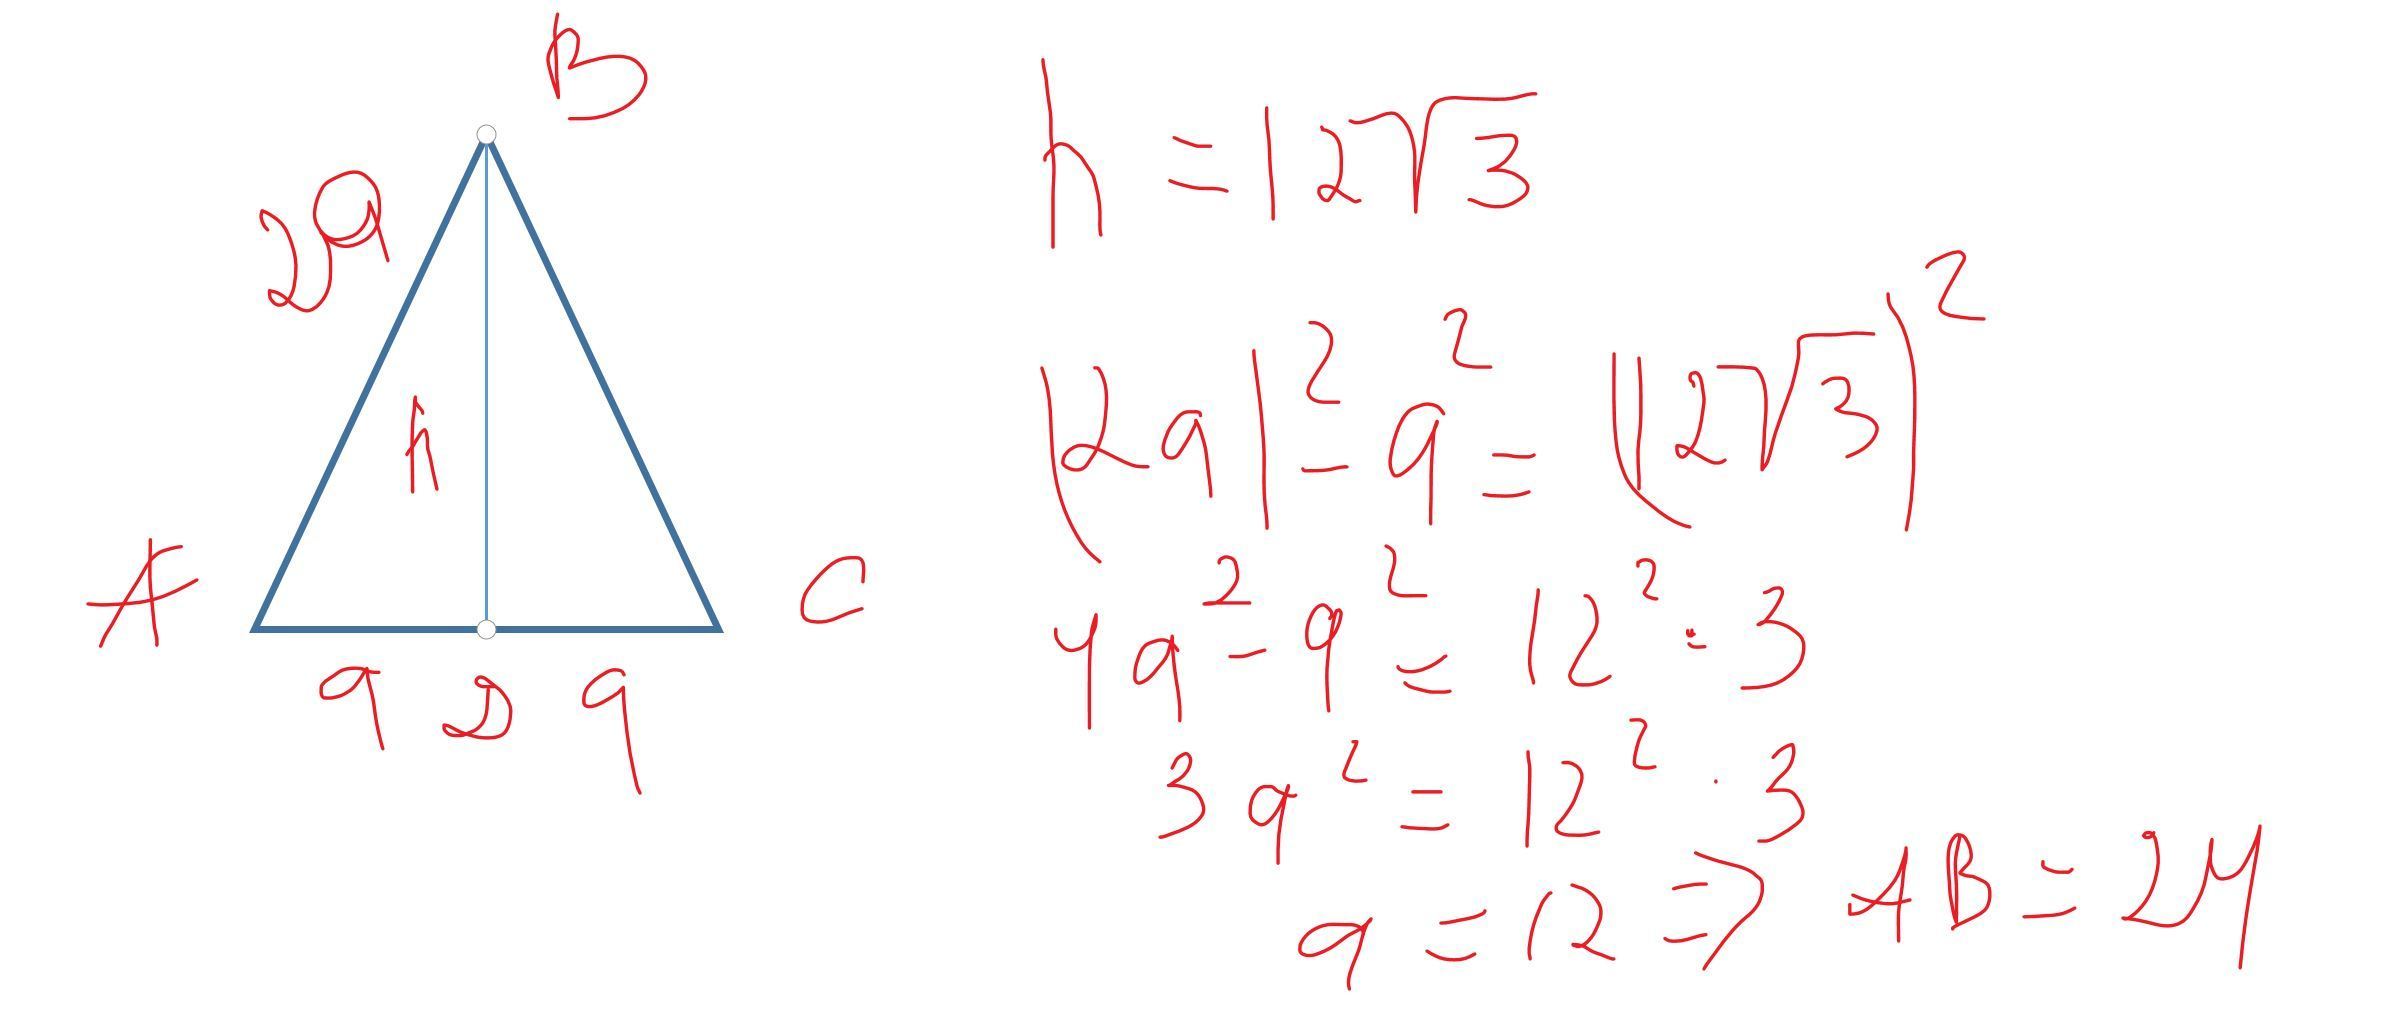 B
2a
h
A
C
a D a
h = 12√3
(2a)² - a² = (12√3)²
4a² - a² = 12² · 3
3a² = 12² · 3
a = 12 ⇒ AB = 24